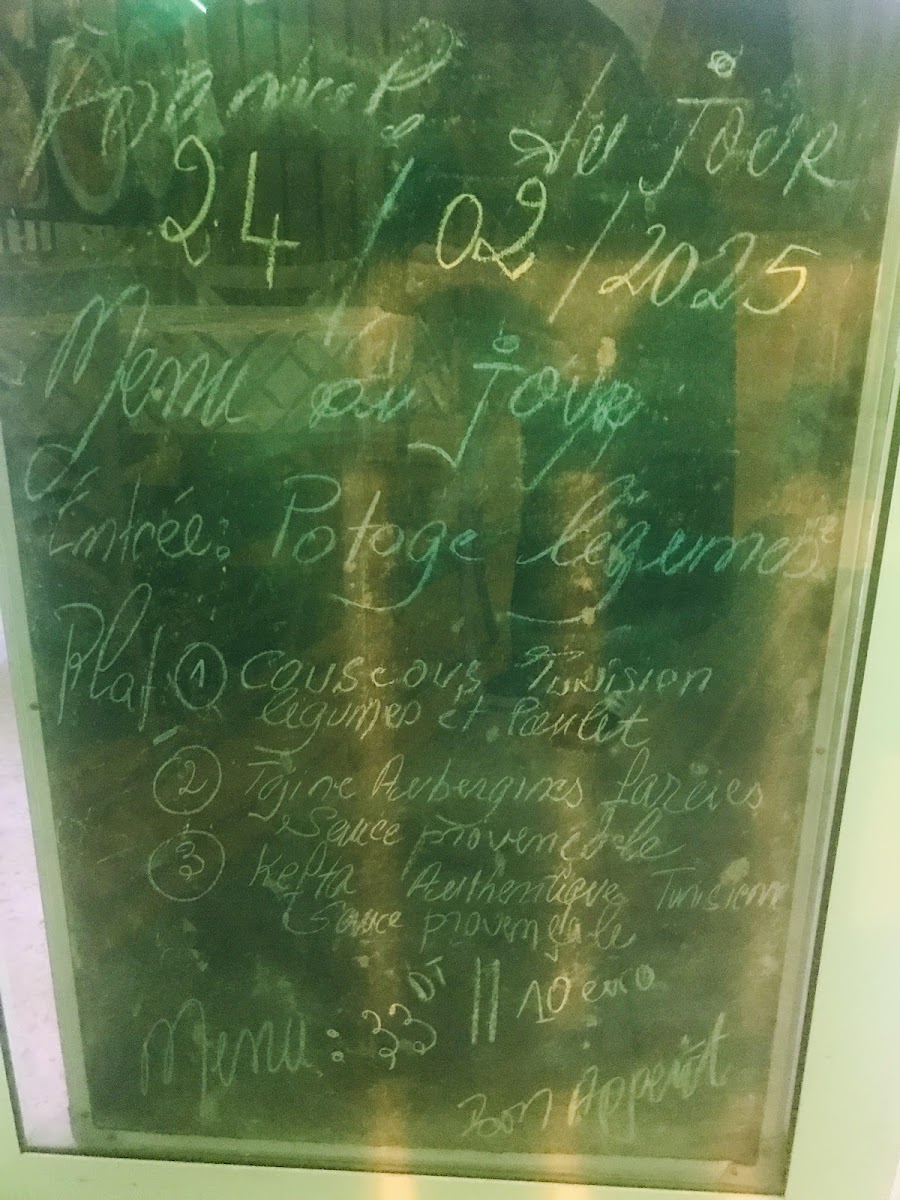 du Jour
24 / 02 / 2025
Menu du Jour
Entrée: Potage légumes
Plat ① Couscous Tunision
légumes et Poulet
② Tgine Aubergines farcies
Sauce provençale
③ Kefta Authentique Tunisienne
Sauce provençale
Menu: 33 DT || 10 euro
Bon Appetit